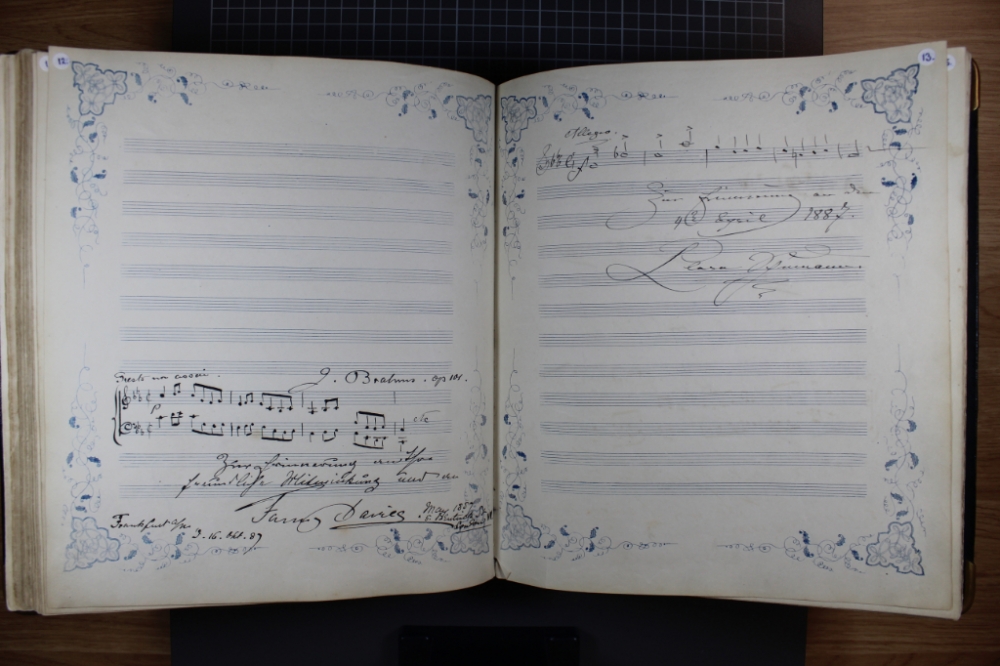 12.
Presto non assai. J. Brahms. op 101.
p
etc
Zur Erinnerung an Ihre
freundliche Mitwirkung und an
Fanny Davies
Frankfurt a/m
3.-16. Okt. 87
13.
Allegro.
f
Zur Erinnerung an den
April 1887.
Clara Schumann.